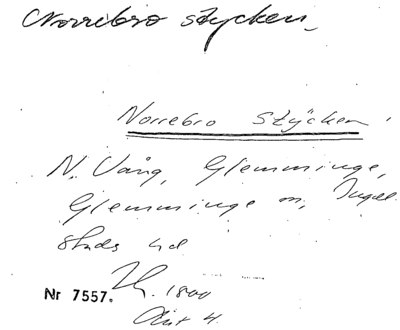 Norrebro stycken
Norrebro Stycken
N. Vång, Glemminge,
Glemminge sn, Ingel.
stads hd
Nr 7557. 1800
Akt 4.